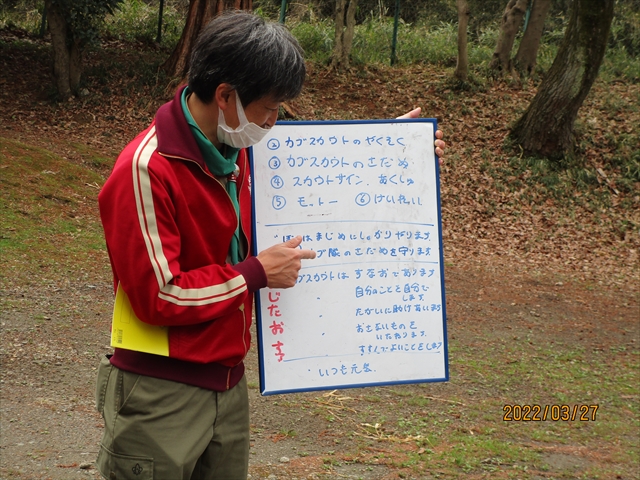 ② カブスカウトのやくそく
③ カブスカウトのさだめ
④ スカウトサイン、あくしゅ
⑤ モットー ⑥ けいれい
ぼくはまじめにしっかりやります
カブ隊のさだめを守ります
ブスカウトは すなおであります
〃 自分のことを自分で
します
〃 たがいに助けあいます
〃 おさないものを
いたわります
〃 すすんでよいことをします
じ
た
お
す
いつも元気
2022/03/27